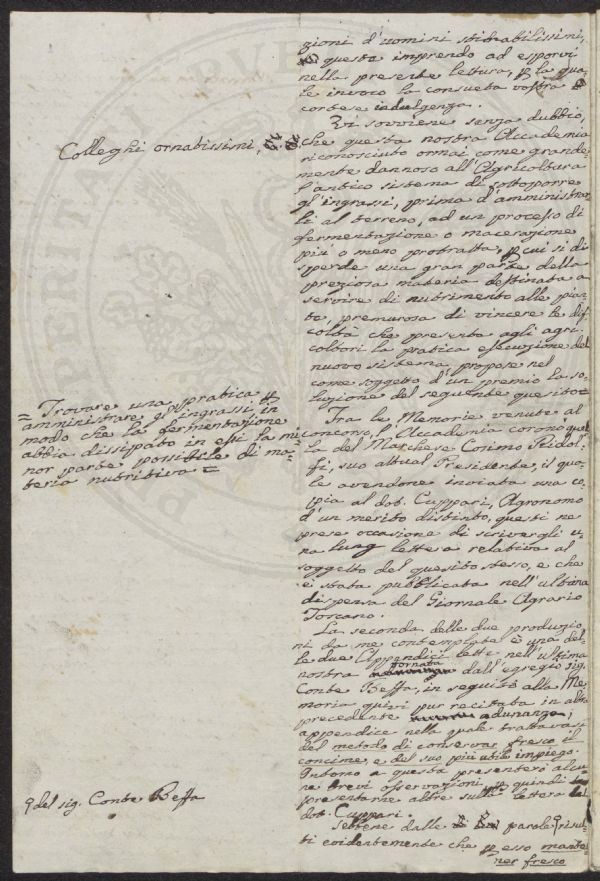 zioni d'uomini stimabilissimi,
questa imprendo ad esporvi
nella presente lettura, p la qua-
le invoco la consueta vostra
cortese indulgenza.
Vi sovviene senza dubbio,
Colleghi ornatissimi,
che questa nostra Accademia
riconosciuto ormai come grande-
mente dannoso all'Agricoltura
l'antico sistema di sottoporre
gl'ingrassi, prima d'amministrar-
li al terreno, ad un processo di
fermentazione o macerazione
più o meno protratta, p cui si di-
sperde una gran parte della
preziosa materia destinata a
servire di nutrimento alle pian-
te, premurosa di vincere le dif-
coltà che presenta agli agri-
coltori la pratica esecuzione del
nuovo sistema, propose nel
come soggetto d'un premio la so-
luzione del seguente quesito
= Trovare una pratica p
amministrare gl'ingrassi, in
modo che la fermentazione
abbia dissipato in essi la mi-
nor parte possibile di ma-
teria nutritiva =
Tra le Memorie venute al
concorso, l'Accademia coronò quel-
la del Marchese Cosimo Ridol-
fi, suo attual Presidente, il qua-
le avendone inviata una co-
pia al dot. Cuppari, Agronomo
d'un merito distinto, questi ne
prese occasione di scrivergli u-
na lung lettera relativa al
soggetto del quesito stesso, e che
è stata pubblicata nell'ultima
dispensa del Giornale Agrario
Toscano.
La seconda delle due produzio-
ni da me contemplate è una del-
le due Appendici lette nell'ultima
nostra tornata dall'egregio sig.
Conte Beffa, in seguito alla Me-
moria quivi pur recitata in altra
precedente adunanza;
appendice nella quale trattavasi
del metodo di conservar fresco il
concime, e del suo più utile impiego.
Intorno a questa presenterò alcu-
ne brevi osservazioni, p quindi
presentarne altre sulla lettera del
dot. Cuppari.
Sebbene dalle parole
del sig. Conte Beffa
risul-
ti evidentemente che p esso mante-
ner fresco